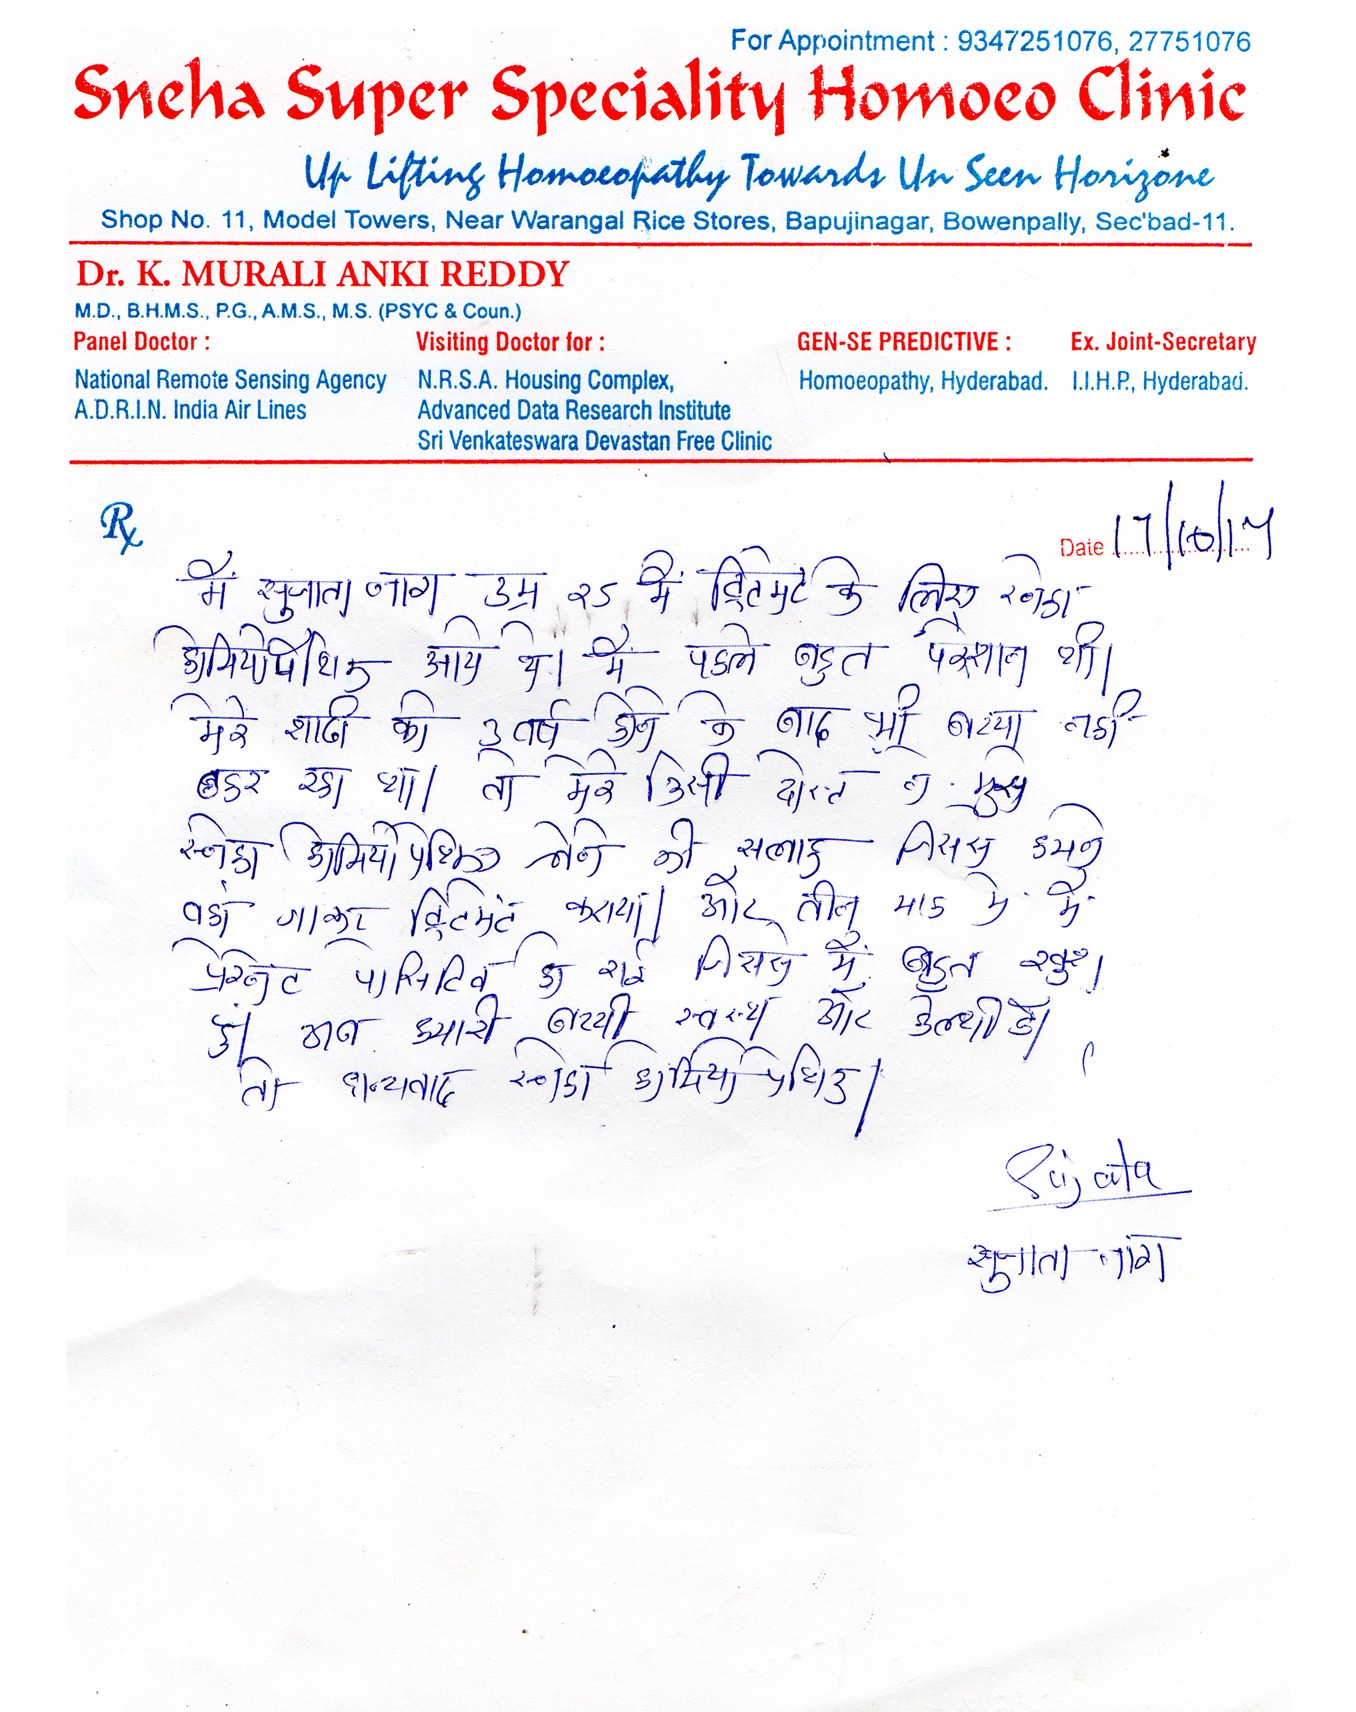 For Appointment : 9347251076, 27751076
Sneha Super Speciality Homoeo Clinic
Up Lifting Homoeopathy Towards Un Seen Horizone
Shop No. 11, Model Towers, Near Warangal Rice Stores, Bapujinagar, Bowenpally, Sec'bad-11.
Dr. K. MURALI ANKI REDDY
M.D., B.H.M.S., P.G., A.M.S., M.S. (PSYC & Coun.)
Panel Doctor : Visiting Doctor for : GEN-SE PREDICTIVE : Ex. Joint-Secretary
National Remote Sensing Agency N.R.S.A. Housing Complex, Homoeopathy, Hyderabad. I.I.H.P., Hyderabad.
A.D.R.I.N. India Air Lines Advanced Data Research Institute
Sri Venkateswara Devastan Free Clinic
Rx
Date 17/10/17
मैं सुजाता नाग उम्र २5 में ट्रिटमेंट के लिए स्नेहा
होमियोपेथिक आये थे। मैं पहले बहुत परेशान थी।
मेरे शादी को 3 वर्ष होने के बाद भी बच्चा नही
ठहर रहा था। तो मेरे किसी दोस्त ने मुझे
स्नेहा होमियोपेथिक लेने की सलाह जिससे हमने
वहां जाकर ट्रिटमेंट कराया। और तीन माह में मैं
प्रेग्नेंट पासिटिव हो गई जिससे मैं बहुत खुश
हूं। आज हमारी बच्ची स्वस्थ और हेल्थी है।
तो धन्यवाद स्नेहा होमियोपेथिक।
Sujata
सुजाता नाग